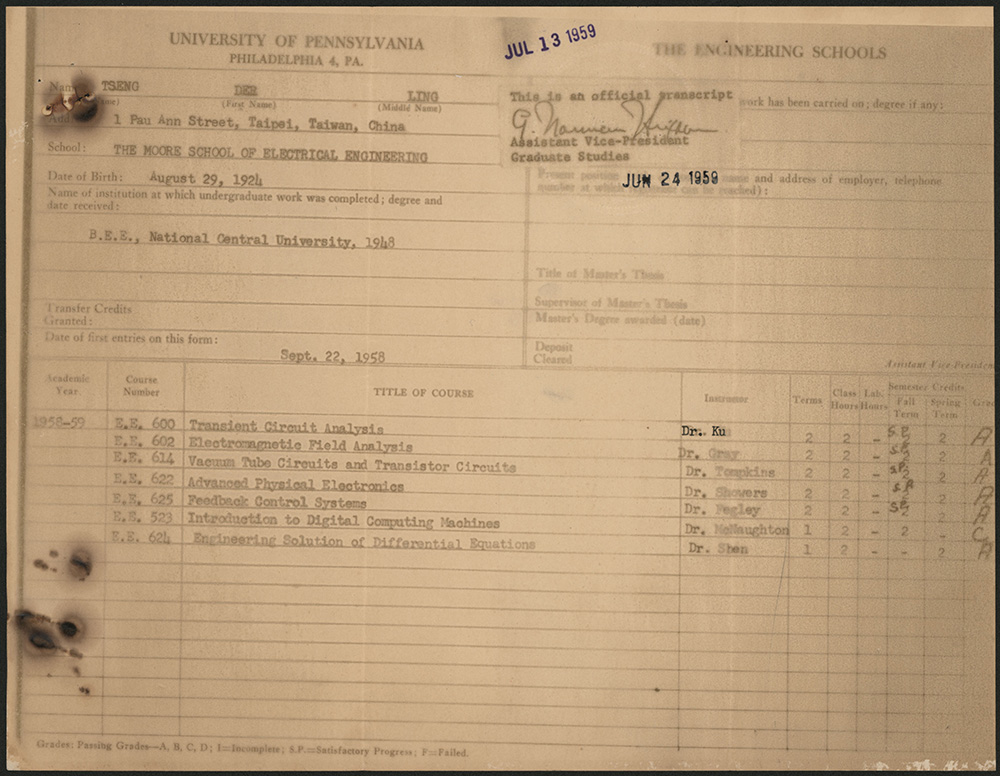 UNIVERSITY OF PENNSYLVANIA
PHILADELPHIA 4, PA.
JUL 13 1959
THE ENGINEERING SCHOOLS
Name TSENG DER LING
(First Name) (Middle Name)
1 Pau Ann Street, Taipei, Taiwan, China
School: THE MOORE SCHOOL OF ELECTRICAL ENGINEERING
Date of Birth: August 29, 1924
Name of institution at which undergraduate work was completed; degree and
date received:
B.E.E., National Central University, 1948
Transfer Credits
Granted:
Date of first entries on this form:
Sept. 22, 1958
This is an official transcript
work has been carried on; degree if any:
Assistant Vice-President
Graduate Studies
Present position and address of employer, telephone
number at which can be reached):
JUN 24 1959
Title of Master's Thesis
Supervisor of Master's Thesis
Master's Degree awarded (date)
Deposit
Cleared
Assistant Vice-President
Academic Year. Course Number TITLE OF COURSE Instructor Terms Class Hours Lab. Hours Semester Credits Fall Term Spring Term
1958-59 E.E. 600 Transient Circuit Analysis Dr. Ku 2 2 - S.P. 2 A
E.E. 602 Electromagnetic Field Analysis Dr. Gray 2 2 - S.P. 2 A
E.E. 614 Vacuum Tube Circuits and Transistor Circuits Dr. Tompkins 2 2 - S.P. 2 A
E.E. 622 Advanced Physical Electronics Dr. Showers 2 2 - S.P. 2 A
E.E. 625 Feedback Control Systems Dr. Fegley 2 2 - S.P. 2 A
E.E. 523 Introduction to Digital Computing Machines Dr. McNaughton 1 2 - 2 - C
E.E. 624 Engineering Solution of Differential Equations Dr. Shen 1 2 - - 2 A
Grades: Passing Grades—A, B, C, D; I=Incomplete; S.P.=Satisfactory Progress; F=Failed.